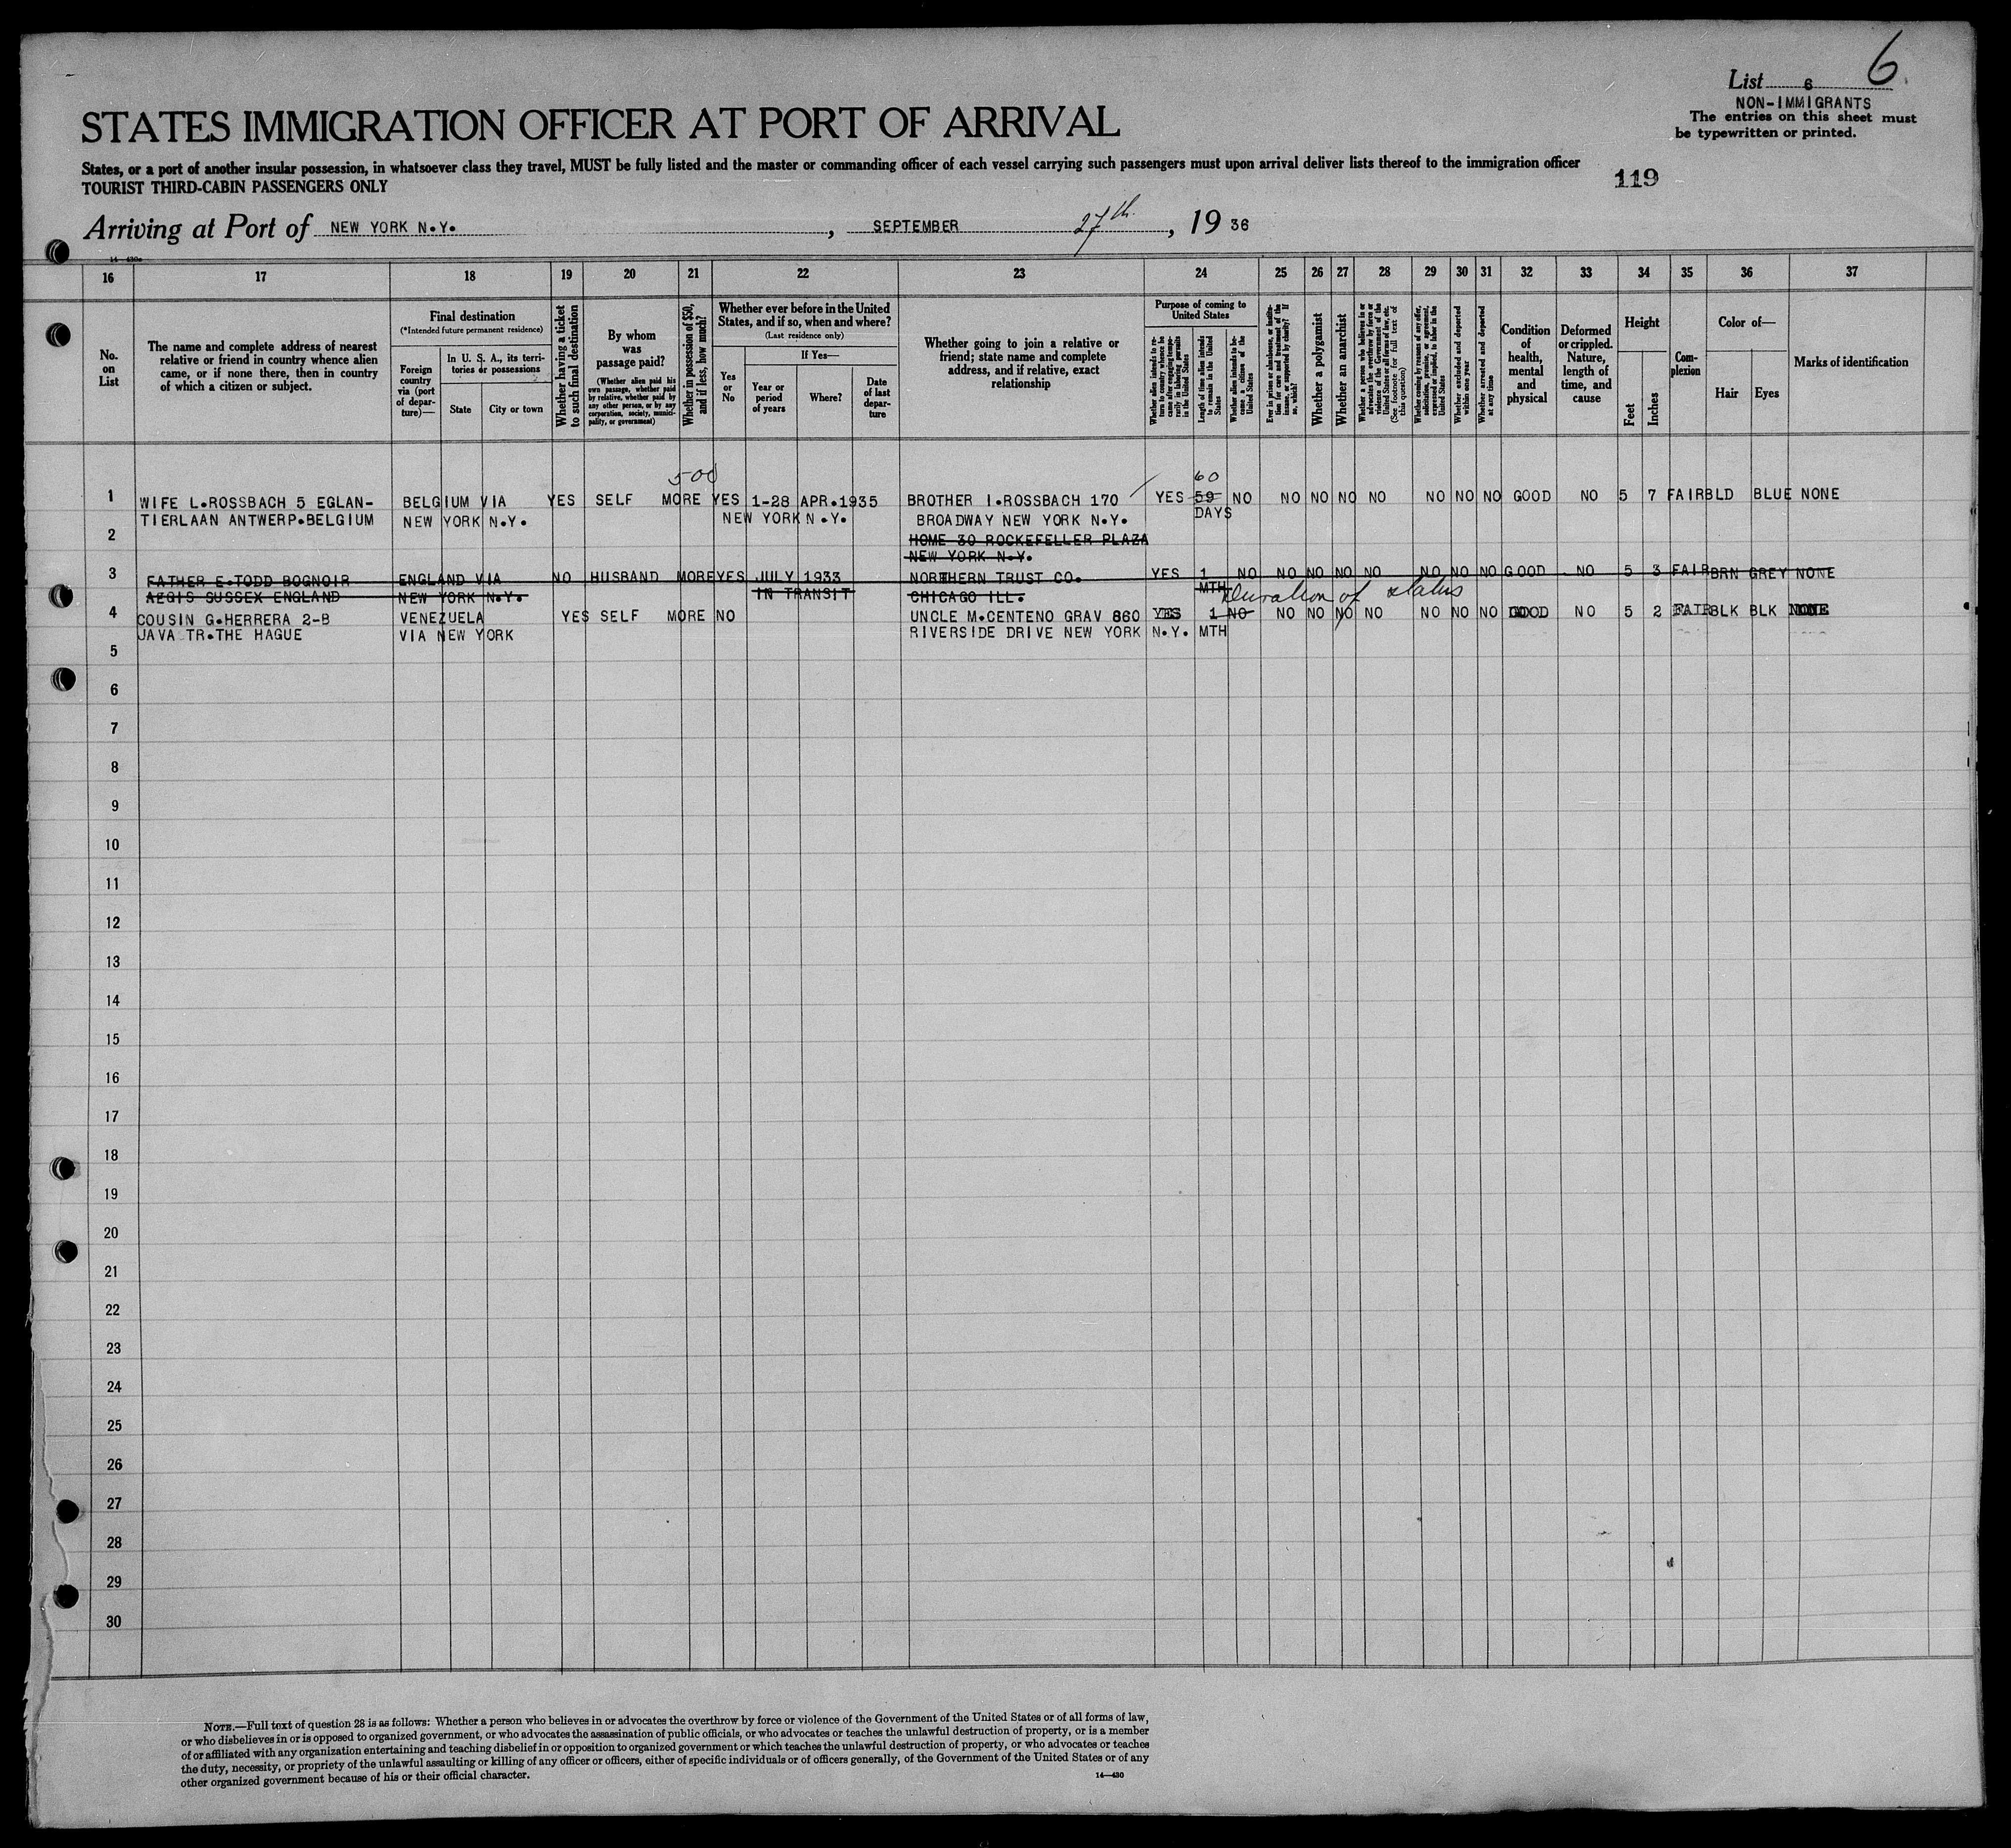 6
List 6
NON-IMMIGRANTS
The entries on this sheet must
be typewritten or printed.
STATES IMMIGRATION OFFICER AT PORT OF ARRIVAL
States, or a port of another insular possession, in whatsoever class they travel, MUST be fully listed and the master or commanding officer of each vessel carrying such passengers must upon arrival deliver lists thereof to the immigration officer
TOURIST THIRD-CABIN PASSENGERS ONLY
119
Arriving at Port of NEW YORK N.Y. , SEPTEMBER 27th , 19 36
16 17 18 19 20 21 22 23 24 25 26 27 28 29 30 31 32 33 34 35 36 37
No. on List
The name and complete address of nearest
relative or friend in country whence alien
came, or if none there, then in country
of which a citizen or subject.
Final destination
(*Intended future permanent residence)
Foreign country via (port of departure)—
In U. S. A., its territories or possessions
State
City or town
Whether having a ticket to such final destination
By whom was passage paid?
(Whether alien paid his own passage, whether paid by relative, whether paid by any other person, or by any corporation, society, municipality, or government)
Whether in possession of $50, and if less, how much?
Whether ever before in the United States, and if so, when and where?
(Last residence only)
Yes or No
If Yes—
Year or period of years
Where?
Date of last departure
Whether going to join a relative or
friend; state name and complete
address, and if relative, exact
relationship
Purpose of coming to United States
Whether alien intends to return to country whence he came after engaging temporarily in laboring pursuits in the United States
Length of time alien intends to remain in the United States
Whether alien intends to become a citizen of the United States
Ever in prison or almshouse, or institution for care and treatment of the insane, or supported by charity? If so, which?
Whether a polygamist
Whether an anarchist
Whether a person who believes in or advocates the overthrow by force or violence of the Government of the United States or all forms of law, etc. (See footnote for full text of this question)
Whether coming by reason of any offer, solicitation, promise, or agreement, expressed or implied, to labor in the United States
Whether excluded and deported within one year
Whether arrested and deported at any time
Condition of health, mental and physical
Deformed or crippled. Nature, length of time, and cause
Height
Feet
Inches
Complexion
Color of—
Hair
Eyes
Marks of identification
500 60
1 WIFE L.ROSSBACH 5 EGLAN- BELGIUM VIA YES SELF MORE YES 1-28 APR.1935 BROTHER I.ROSSBACH 170 YES 59 NO NO NO NO NO NO NO NO GOOD NO 5 7 FAIR BLD BLUE NONE
TIERLAAN ANTWERP.BELGIUM NEW YORK N.Y. NEW YORK N.Y. BROADWAY NEW YORK N.Y. DAYS
2 HOME 30 ROCKEFELLER PLAZA
NEW YORK N.Y.
3 FATHER E.TODD BOGNOIR ENGLAND VIA NO HUSBAND MORE YES JULY 1933 NORTHERN TRUST CO. YES 1 NO NO NO NO NO NO NO NO GOOD NO 5 3 FAIR BRN GREY NONE
AEGIS SUSSEX ENGLAND NEW YORK N.Y. IN TRANSIT CHICAGO ILL. MTH Duration of status
4 COUSIN G.HERRERA 2-B VENEZUELA YES SELF MORE NO UNCLE M.CENTENO GRAV 860 YES 1 NO NO NO NO NO NO NO NO GOOD NO 5 2 FAIR BLK BLK NONE
JAVA TR.THE HAGUE VIA NEW YORK RIVERSIDE DRIVE NEW YORK N.Y. MTH
5
6
7
8
9
10
11
12
13
14
15
16
17
18
19
20
21
22
23
24
25
26
27
28
29
30
NOTE.—Full text of question 28 is as follows: Whether a person who believes in or advocates the overthrow by force or violence of the Government of the United States or of all forms of law,
or who disbelieves in or is opposed to organized government, or who advocates the assassination of public officials, or who advocates or teaches the unlawful destruction of property, or is a member
of or affiliated with any organization entertaining and teaching disbelief in or opposition to organized government or which teaches the unlawful destruction of property, or who advocates or teaches
the duty, necessity, or propriety of the unlawful assaulting or killing of any officer or officers, either of specific individuals or of officers generally, of the Government of the United States or of any
other organized government because of his or their official character.
14—430